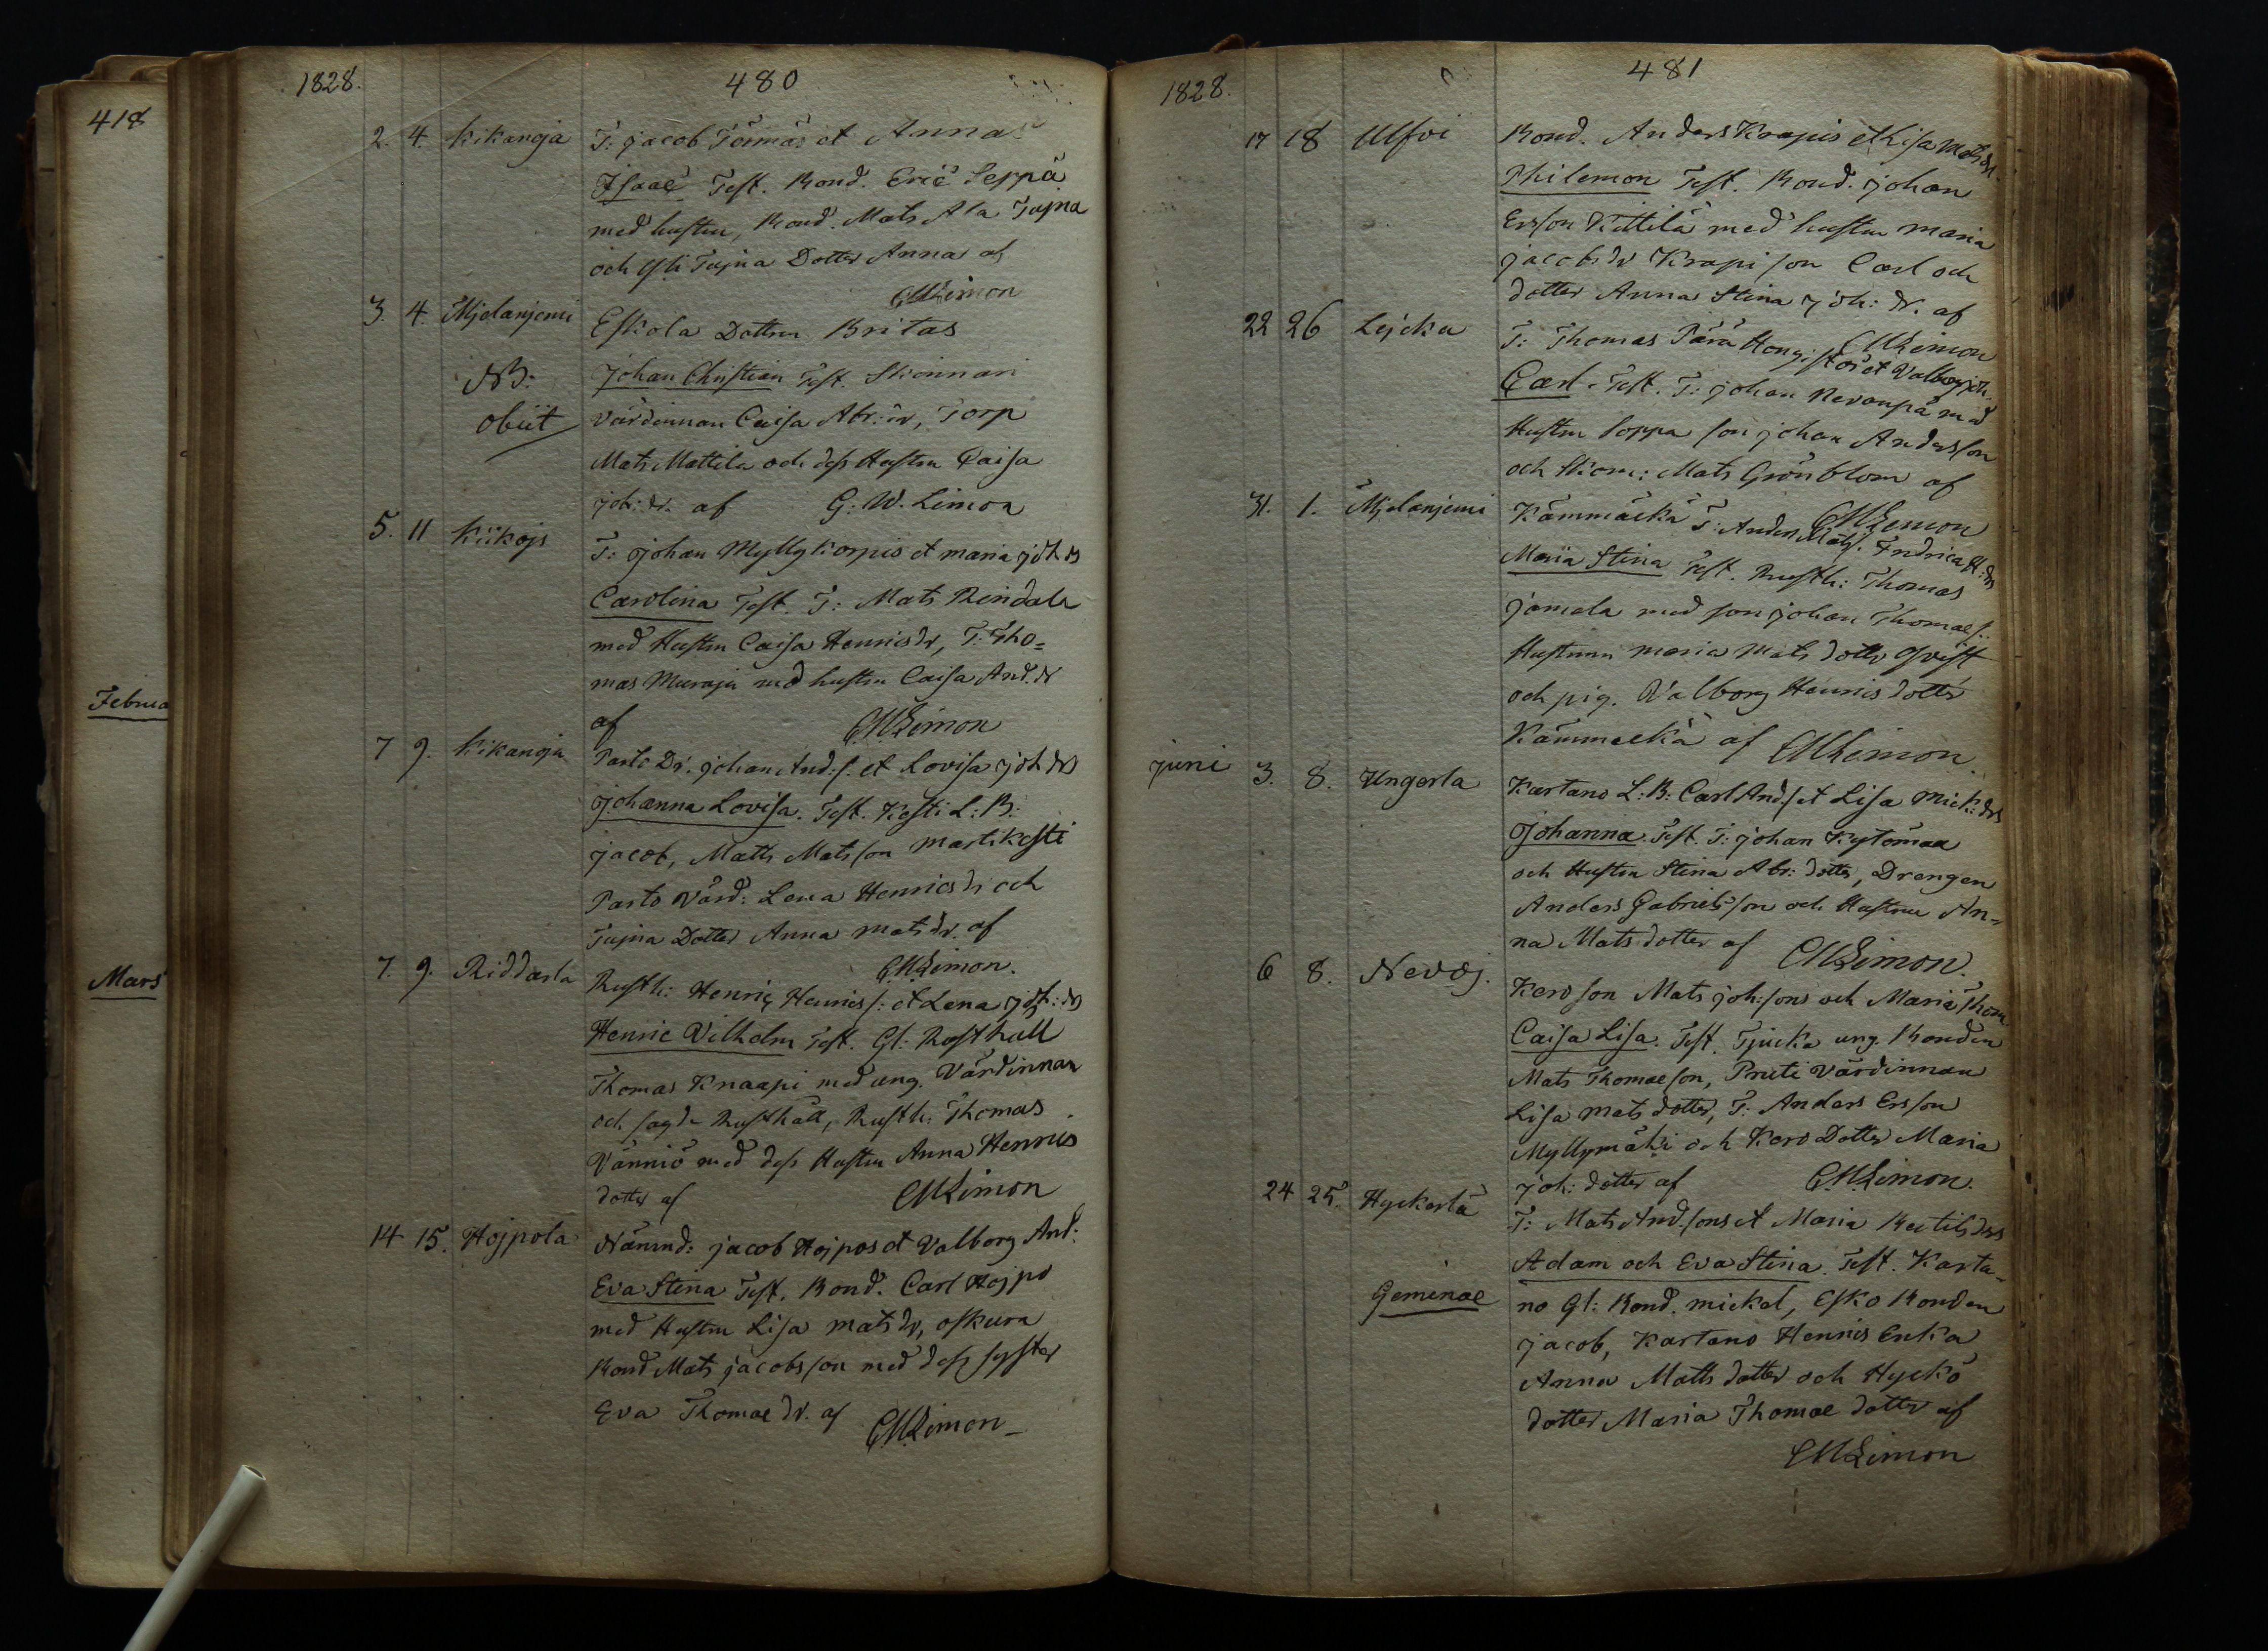 418
Februa
Mars
1828. 480
2. 4. Kikanoja T: Jacob Törmäs et Anna
Isaac Test. Bond. Eric Seppä
med hustru, Bond. Mats Ala Tujna
och Yli Tujna Dotter Anna af
CMLimon
3. 4. Mjelanjemi Eskola Dottren Britas
NB: Johan Christian Test. Skinnari
obiit värdinnan Caisa Abr: dr, Torp
Mats Mattila och dess Hustru Caisa
joh: dr. af G. W. Limon
5. 11 Kiikojs T: Johan Myllykorpis et Maria joh ds
Carolina Test. T: Mats Rindala
med Hustru Caisa Henricsdr, T: Tho=
mas Muraja med hustru Caisa And. dr
af CMLimon
7 9. Kikanoja Parto Dr. Johan And: s. et Lovisa joh drs
Johanna Lovisa. Test. Kesti L: B:
jacob, Matts Matsson Martikesti
Parto Värd: Lena Henricsdr och
Tujna Dotter Anna Matsdr. af
CMLimon.
7. 9. Riddarla Rusth: Henric Henrics: et Lena joh: ds
Henric Vilhelm Test. Gl: Rusthåll
Thomas Knaapi med ung. Värdinnan
och sagde Rusthåll, Rusth: Thomas
Vänniö med dess Hustru Anna Henrics
dotter af CMLimon
14 15. Hojpola Nämnd: jacob Hojpos et Valborg And:
Eva Stina Test. Bond. Carl Hojpo
med Hustru Lisa Matsdr, oskura
Bond Mats jacobsson med dess syster
Eva Thomae dr. af CMLimon
1828. 481
17 18 Ulfvi Bond. Anders Krapis et Lisa Mats drs
Philemon Test. Bond. Johan
Ersson Kittilä med hustru Maria
jacobs dr Krapi son Carl och
dotter Anna Stina joh: dr. af
CMLimon
22 26 Lejcku T: Thomas Pärä Hongistos et Valborg joh.
Carl. Test. T: Johan Nevanpä med
Hustru Soppa son johan Andersson
och Skom: Mats Grönblom af
CMLimon
31. 1. Mjelanjemi Kämmäckä T: Anders Mats. Fredrica H: drs
Maria Stina Test. Rusth: Thomas
jamala med son johan Thomaes:
Hustrun Maria Mats dotter Qvist
och pig. Valborg Henrics dotter
Kämmeckä af CMLimon.
juni 3. 8. Ungerla Kartano L: B: Carl Ands et Lisa Mick: drs
Johanna. Test. T: Johan Kytömaa
och Hustru Stina Abr: dotter, Drengen
Anders Gabrielsson och Hustru An=
na Mats dotter af CMLimon.
6 8. Nevoj. Kero son Mats joh:sons och Maria Thom
Caisa Lisa. Test. Tjucka ung. Bonden
Mats Thomaeson, Pruti Värdinnan
Lisa Mats dotter, T: Anders Ersson
Myllymäki och Kero Dotter Maria
joh: dotter af CMLimon.
24 25. Hyckerlä T: Mats And. sons et Maria Bertils drs
Adam och Eva Stina. Test. Karta=
Geminae no Gl: Bond. Mickel, Esko Bonden
jacob, Kartano Henrics Enka
Anna Matts dotter och Hyckö
dotter Maria Thomae dotter af
CMLimon